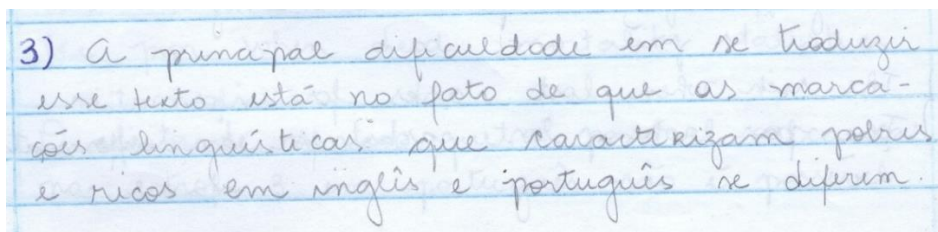 3) A principal dificuldade em se traduzir
esse texto está no fato de que as marca-
ções linguísticas que caracterizam pobres
e ricos em inglês e português se diferem.